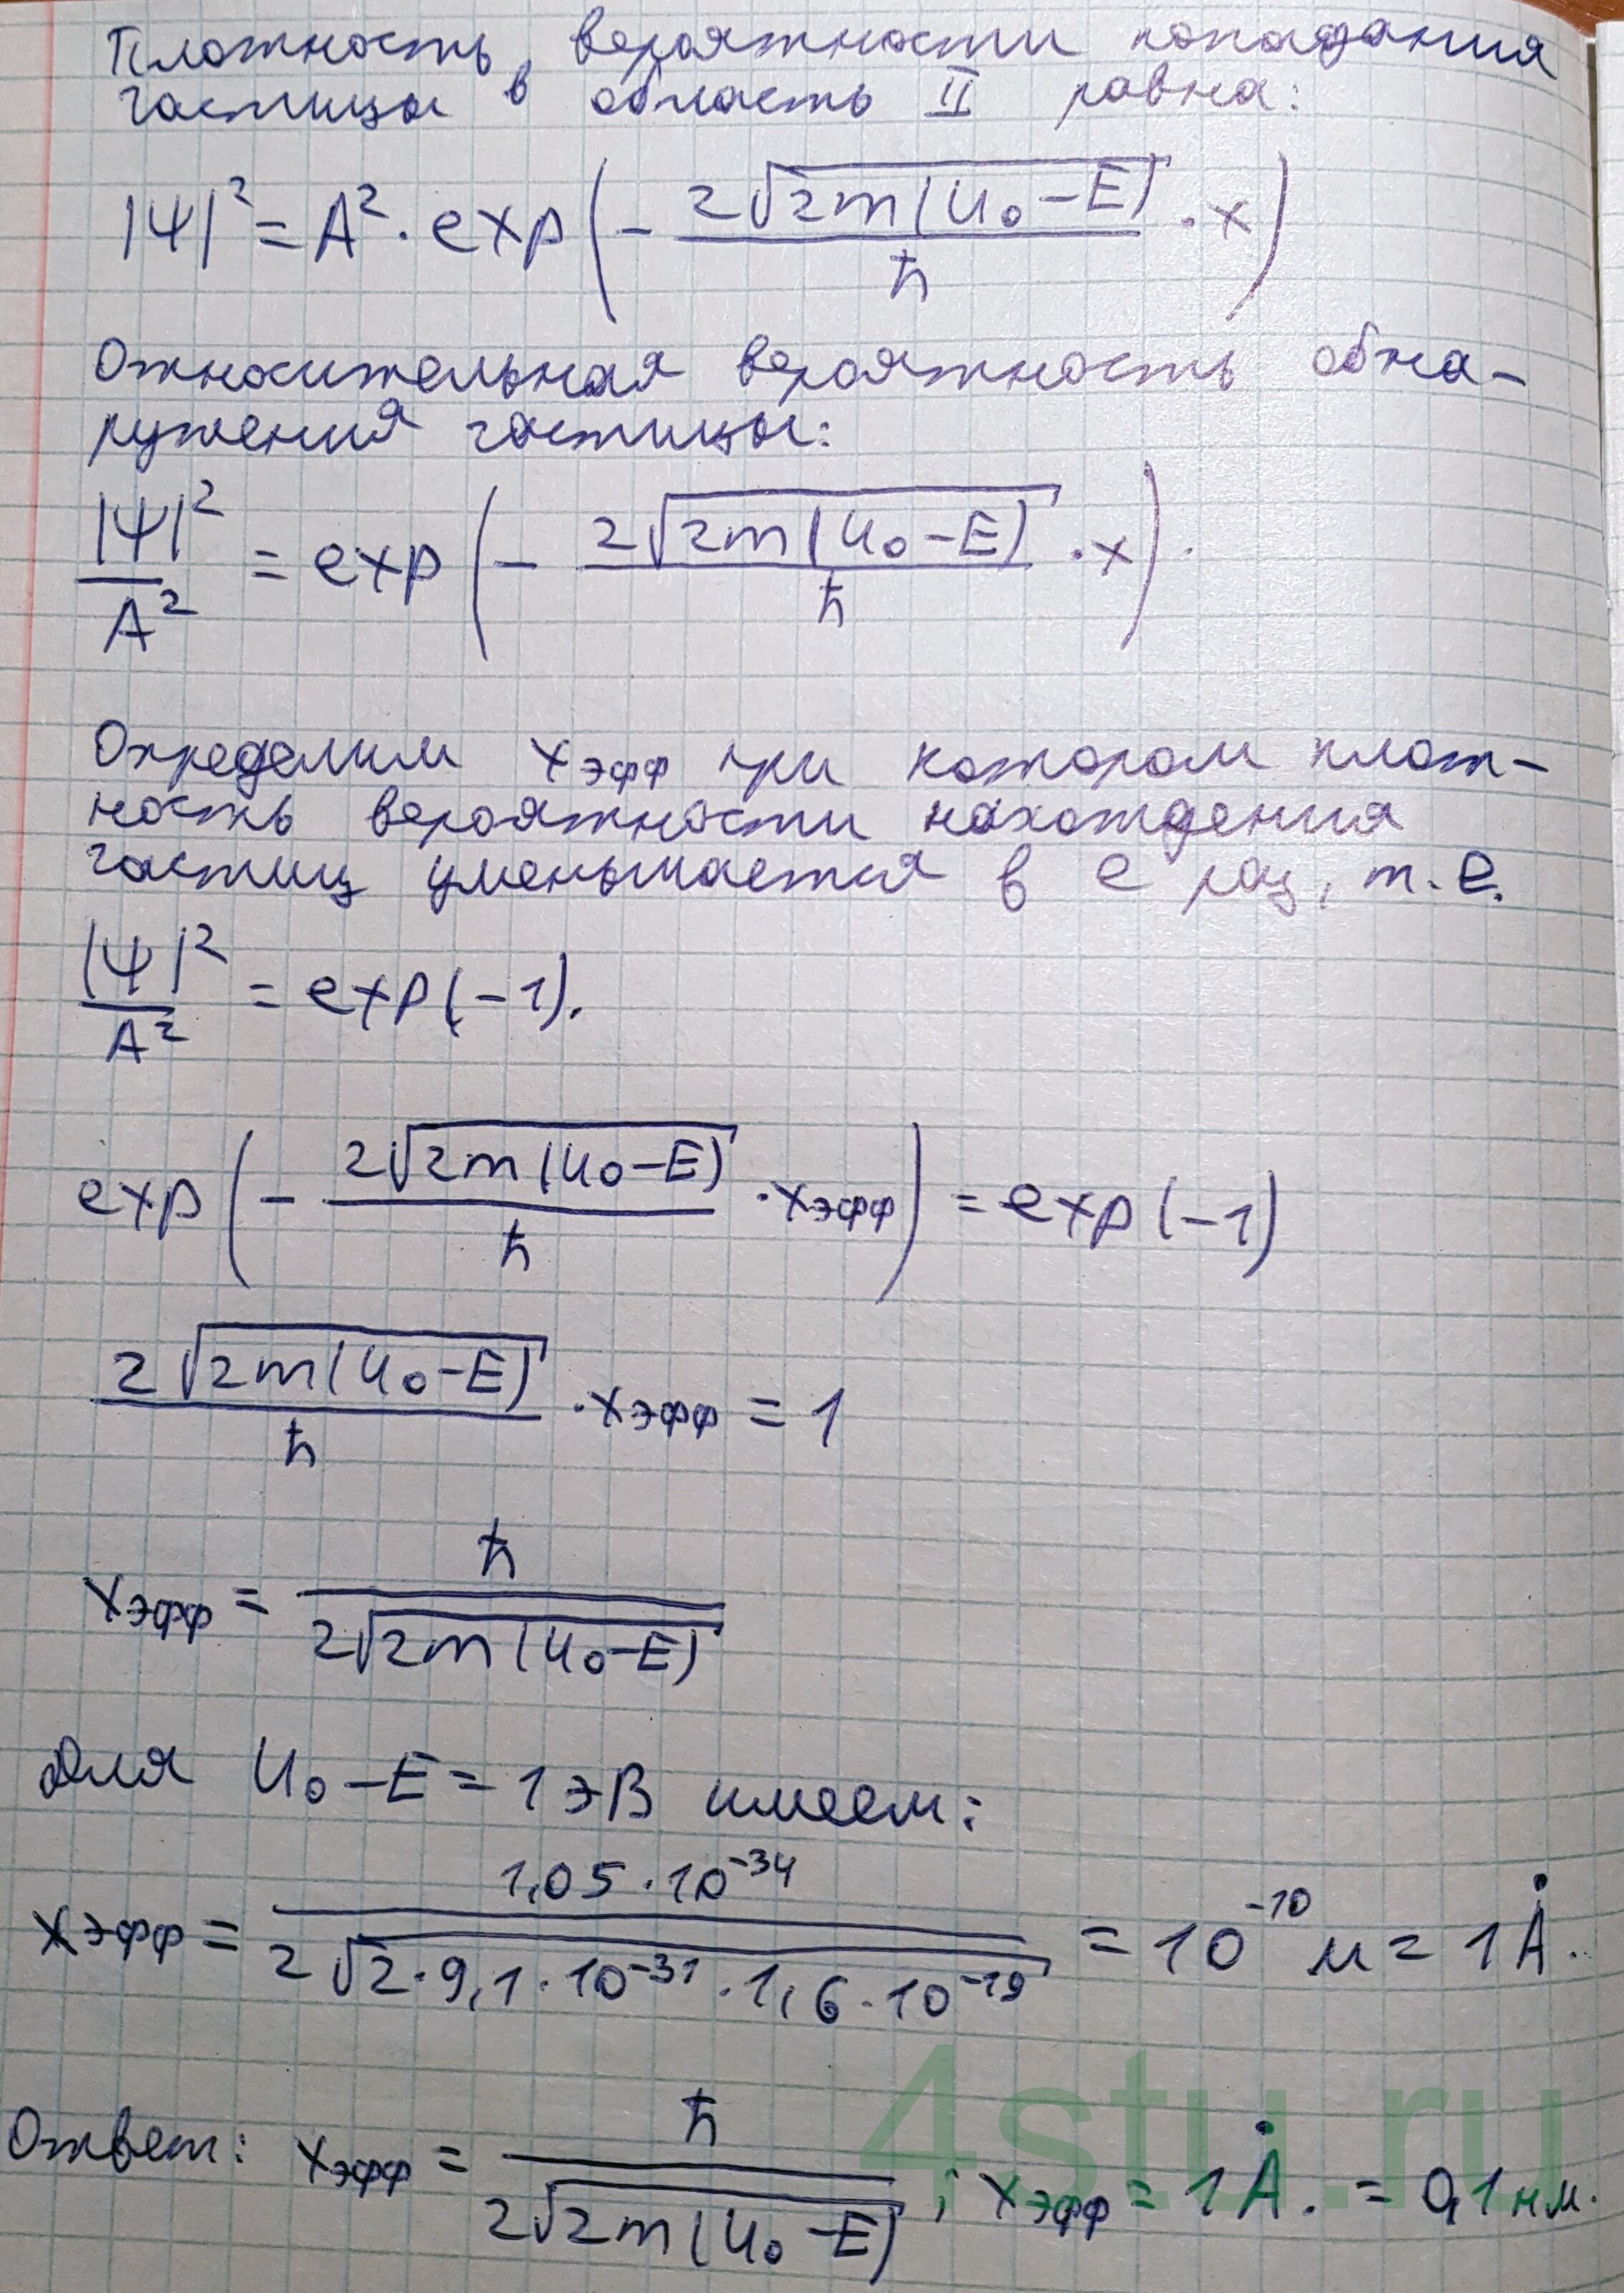 Плотность вероятности попадания
частицы в область II равна:
|Ψ|² = A² · exp(− 2√(2m(U₀−E)) / ħ · x)
Относительная вероятность обна-
ружения частицы:
|Ψ|² / A² = exp(− 2√(2m(U₀−E)) / ħ · x).
Определим xэфф при котором плот-
ность вероятности нахождения
частиц уменьшается в e раз, т.е.
|Ψ|² / A² = exp(−1).
exp(− 2√(2m(U₀−E)) / ħ · xэфф) = exp(−1)
2√(2m(U₀−E)) / ħ · xэфф = 1
xэфф = ħ / 2√(2m(U₀−E))
Для U₀−E = 1 эВ имеем:
xэфф = 1,05·10⁻³⁴ / 2√(2·9,1·10⁻³¹·1,6·10⁻¹⁹) = 10⁻¹⁰ м = 1Å.
Ответ: xэфф = ħ / 2√(2m(U₀−E)) ; xэфф = 1Å. = 0,1 нм.
4stu.ru